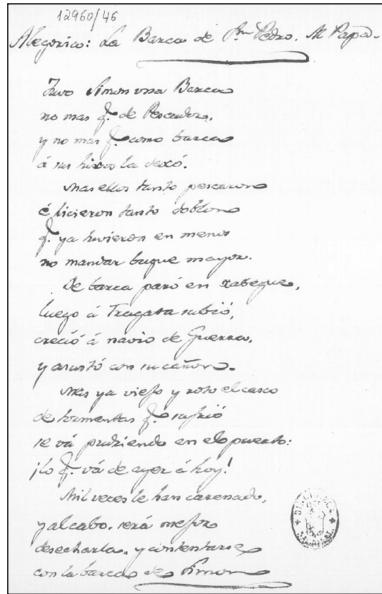 12960/46
Alegorico: La Barca de Sn Pedro. M. Papa.
Tuvo Simon una Barca
no mas q. de Pescador,
y no mas q. como barca
á sus hijos la dexó.
Mas ellos tanto pescaron
é hicieron tanto doblon
q. ya tuvieron en menos
no mandar buque mayor.
De barca paró en xabeque,
luego á Fragata subió,
creció á navio de Guerra,
y asustó con su cañon.
Mas ya viejo y roto el casco
de tormentas q. sufrió
se vá pudriendo en el puerto:
¡Lo q. vá de ayer á hoy!
Mil veces le han carenado,
y al cabo, será mejor
desecharla, y contentarse
con la barca de Simon